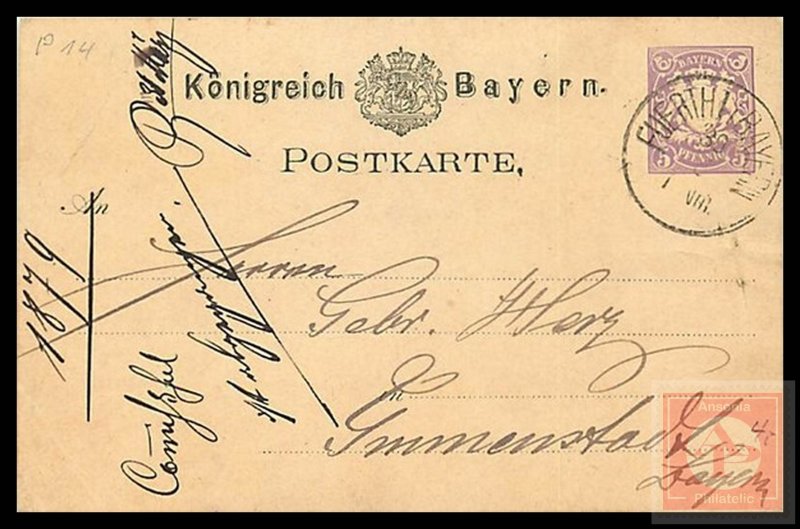 P 14
Königreich Bayern.
POSTKARTE.
BAYERN
5 5
PFENNIG
5 5
FUERTH I. BAYERN
VIII.
An
1879
Herrn
Gebr. Herz
in
Immenstadt
Bayern
Ansonia
AP
Philatelic